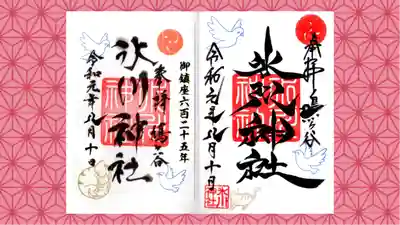 奉拝 鳩ヶ谷
氷川神社
令和元年八月十日
御鎮座六百二十五年
奉拝 鳩ヶ谷
氷川神社
令和元年八月十日